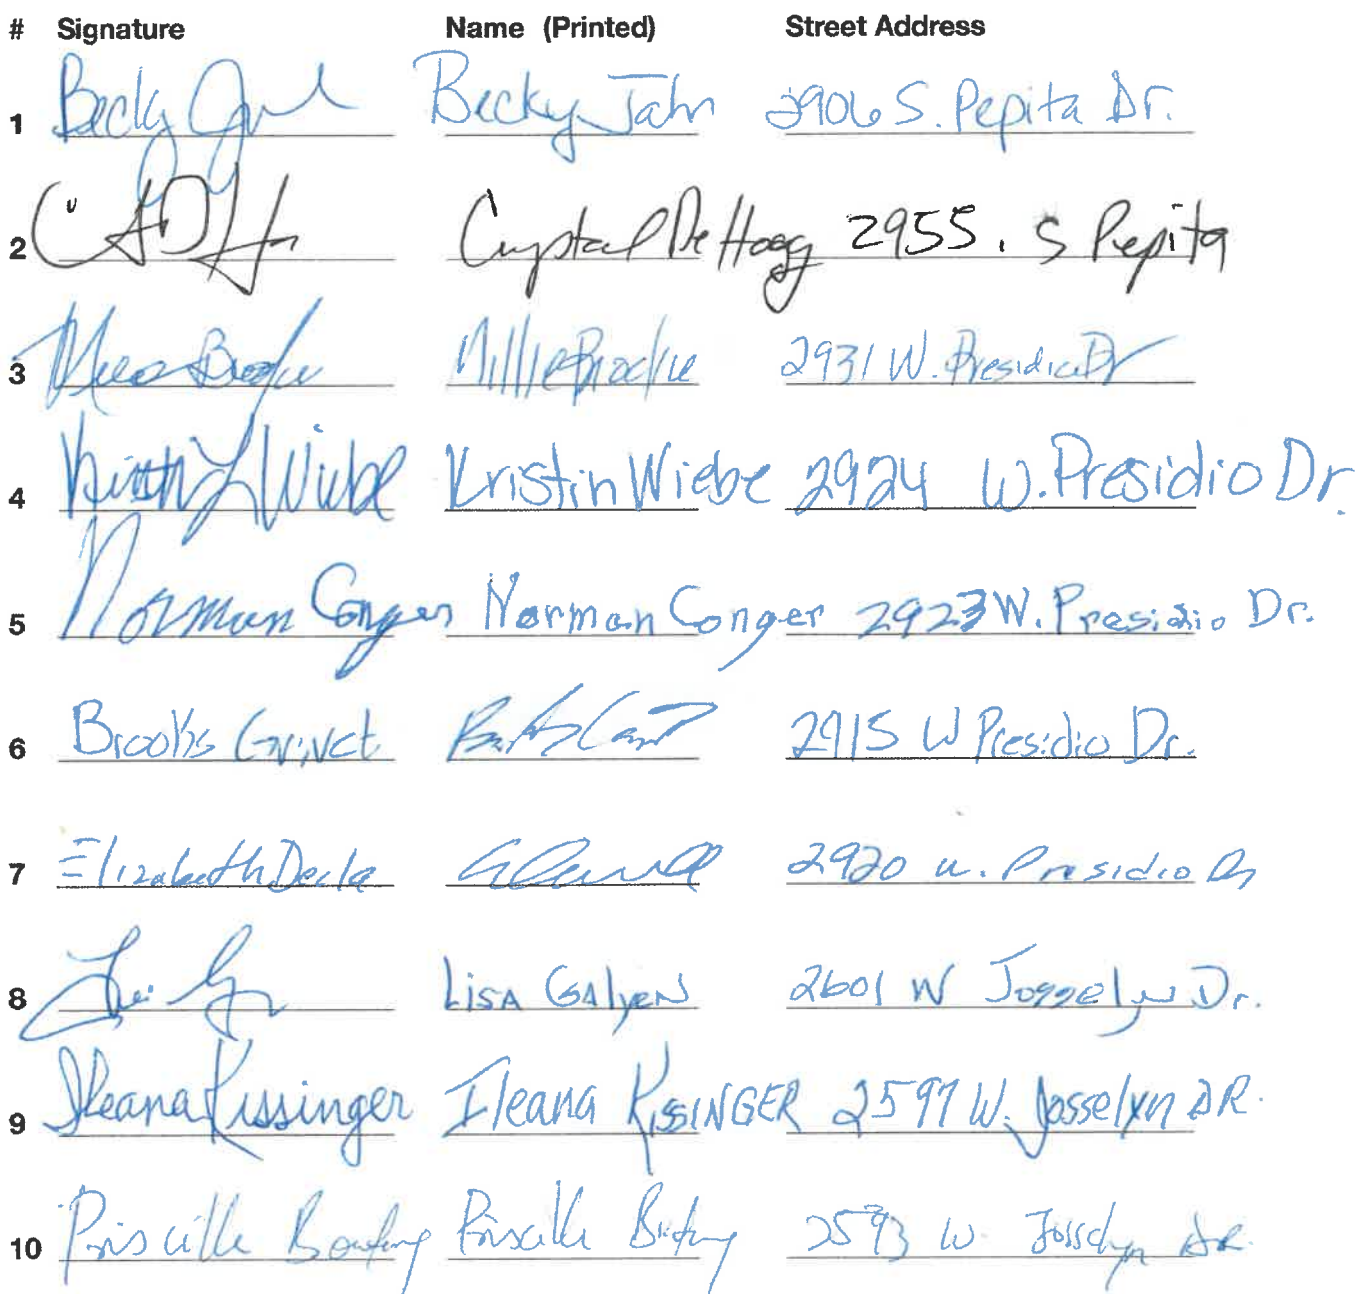 # Signature Name (Printed) Street Address
1 Becky Becky Jahn 2906 S. Pepita Dr.
2 Crystal DeHoag 2955. S Pepita
3 Millie Brodie 2931 W. Presidio Dr
4 Wiebe Kristin Wiebe 2924 W. Presidio Dr.
5 Norman Conger Norman Conger 2923 W. Presidio Dr.
6 Brooks 2915 W Presidio Dr.
7 Elizabeth 2920 w. Presidio Dr
8 Lisa Galyen 2601 W Josselyn Dr.
9 Ileana Kissinger Ileana KissINGER 2597 W. Josselyn DR.
10 Priscilla Priscilla 2593 W. Josselyn DR.